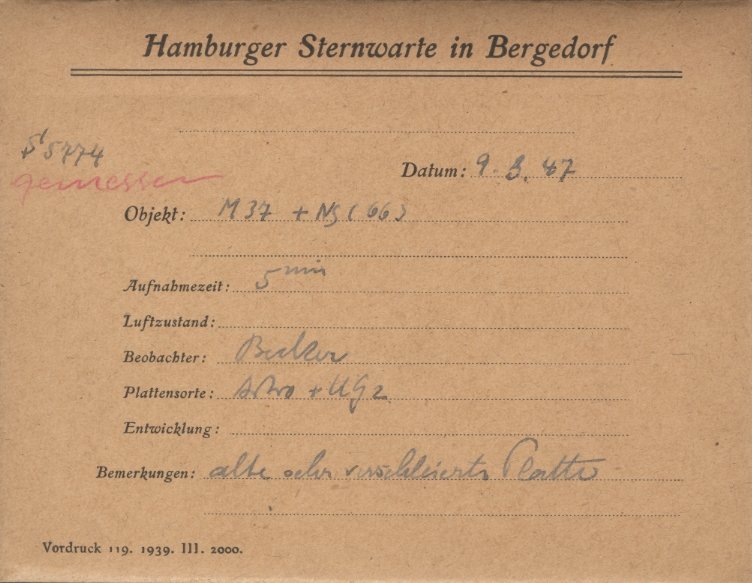 Hamburger Sternwarte in Bergedorf
S 5774
gemessen
Datum: 9. 3. 47
Objekt: M 37 + NS (66)
Aufnahmezeit: 5 min
Luftzustand:
Beobachter: Becker
Plattensorte: Astro + UG2
Entwicklung:
Bemerkungen: alte sehr verschleierte Platte
Vordruck 119. 1939. III. 2000.